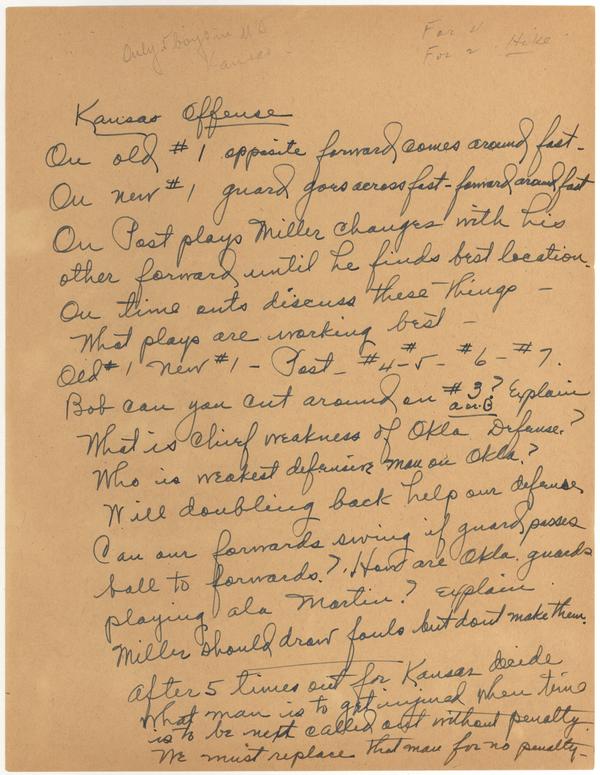 Only 5 boys in U.S.
Kansas -
For 4
For 2 Hike
Kansas Offense
On old #1 opposite forward comes around fast -
On new #1 guard goes across fast - forward around fast
On Post plays Miller changes with his
other forward until he finds best location.
On time outs discuss these things -
What plays are working best -
Old #1 New #1 - Post - #4 - #5 - #6 - #7.
Bob can you cut around on #3? Explain
a or B
What is chief weakness of Okla Defense?
Who is weakest defensive man on Okla.?
Will doubling back help our defense
Can our forwards swing if guard passes
ball to forwards? How are Okla. guards
playing ala Martin? Explain
Miller should draw fouls but dont make them.
After 5 times out for Kansas decide
what man is to get injured when time
is to be next called out without penalty.
We must replace that man for no penalty -